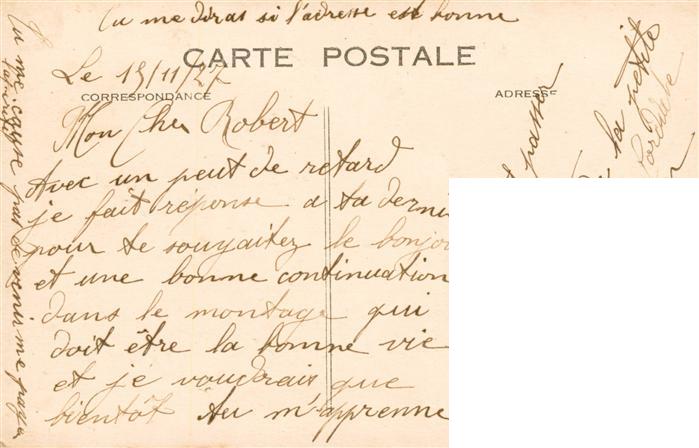 Tu me diras si l'adresse est bonne
CARTE POSTALE
Le 15/11/27
CORRESPONDANCE
ADRESSE
Mon Cher Robert
Avec un peut de retard
je fait réponse a ta derni
pour te souyaitez le bonjou
et une bonne continuation
dans le montage qui
doit être la bonne vie
et je voudrais que
bientôt tu m'apprenne
Tu me casse pas de venir me
passer
la petite